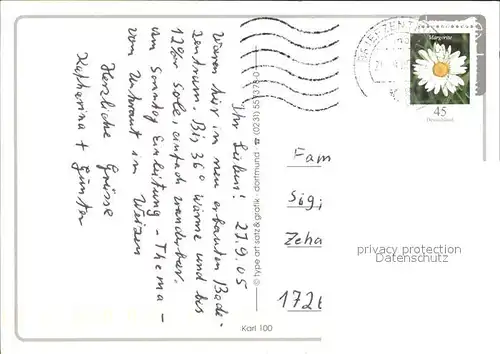 Ihr Lieben! 27.9.05
Waren hier im neu erbauten Bade-
zentrum. Bis 36° Wärme und bis
12% Sole einfach wunderbar.
Am Sonntag Einleitung - Thema -
vom Unkraut im Weizen
Herzliche Grüsse
Katharina + Günter
© type art satz & grafik · dortmund
Karl 100
BRIEFZENTRUM
Margerite
45
Deutschland
Fam
Sig
Zeha
172
privacy protection
Datenschutz